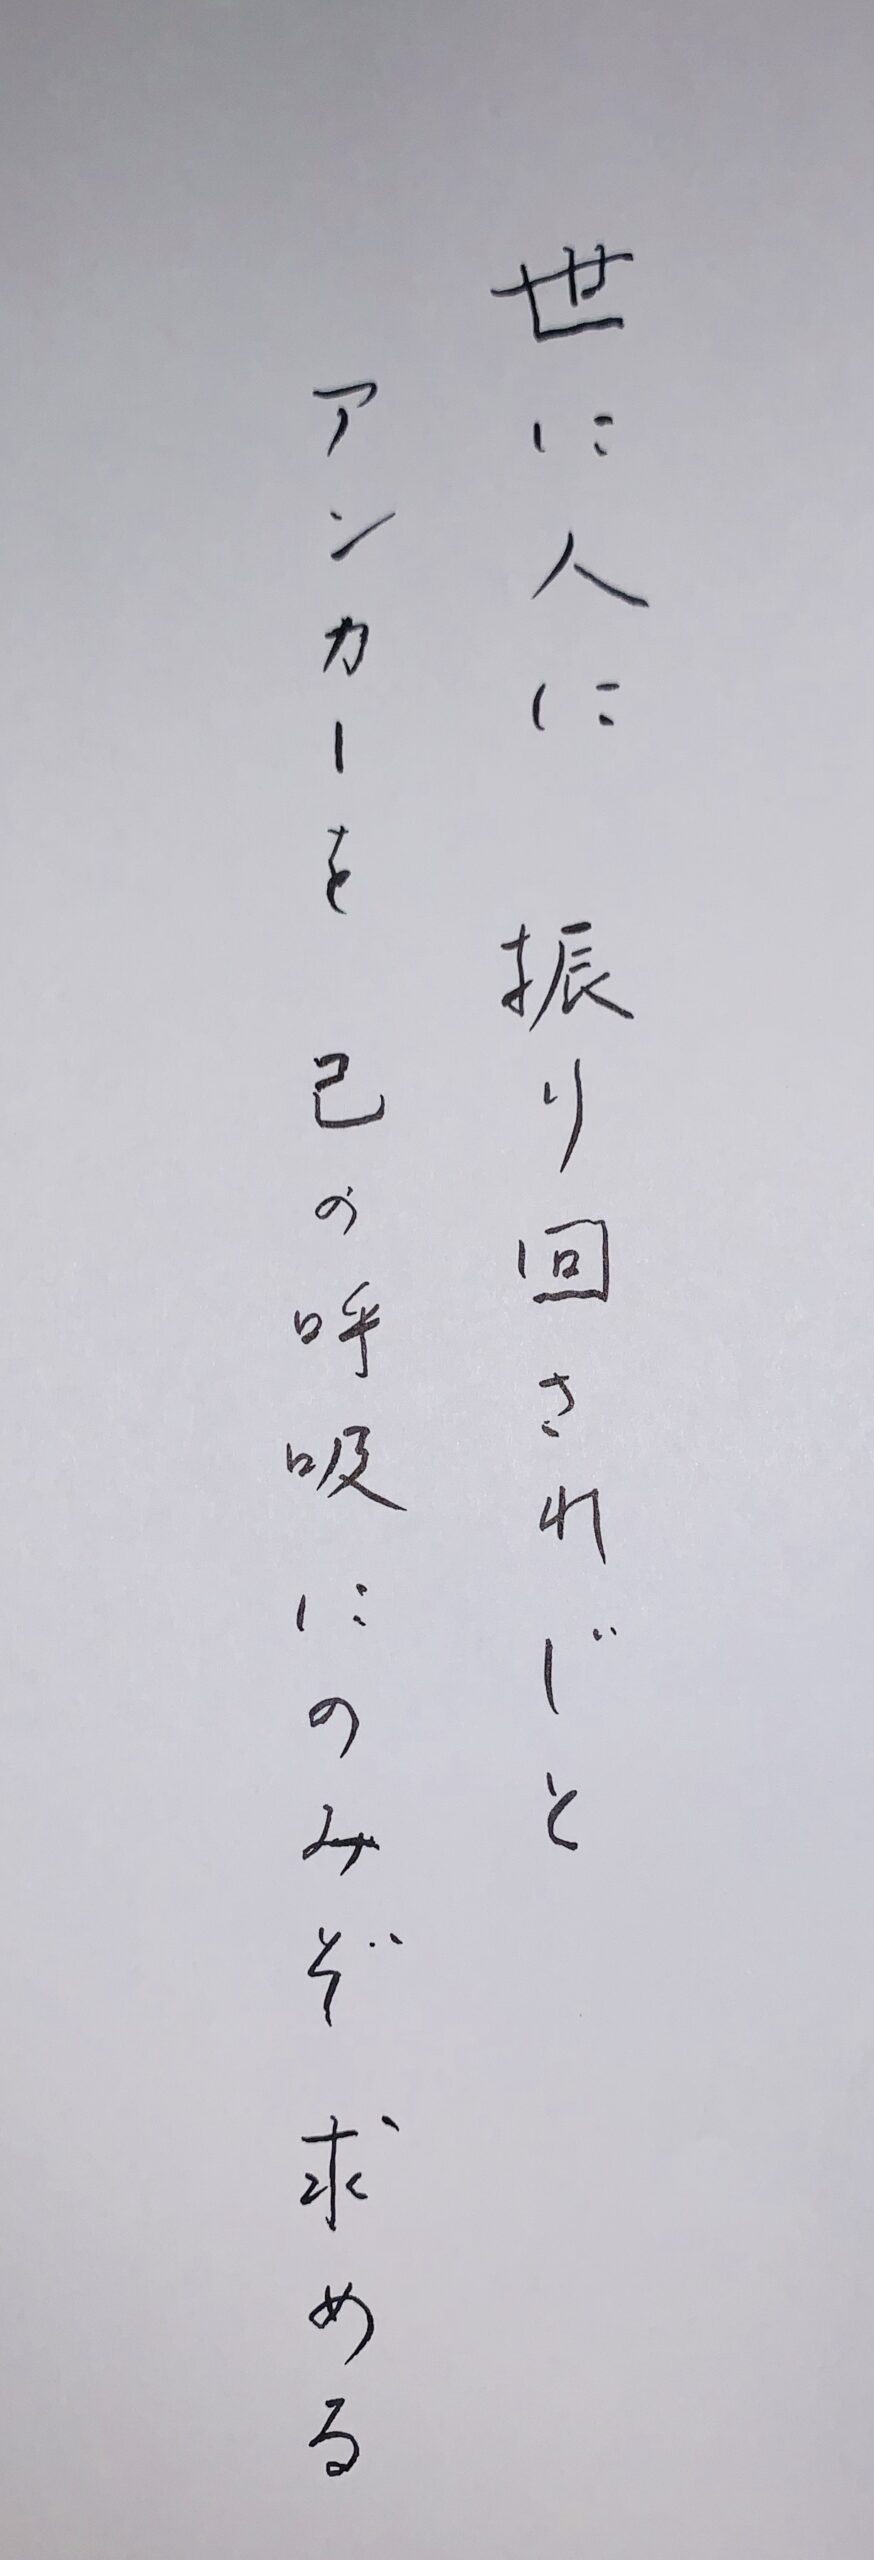 世に人に 振り回されじと
アンカーを 己の呼吸にのみぞ 求める